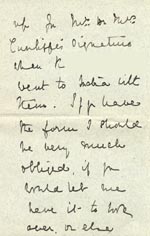 up for Mr. or Mrs.
Cunliffe's signature
when K
went to India till
then. If you have
the form I should
be very much
obliged, if you
would let me
have it to look
over, or else